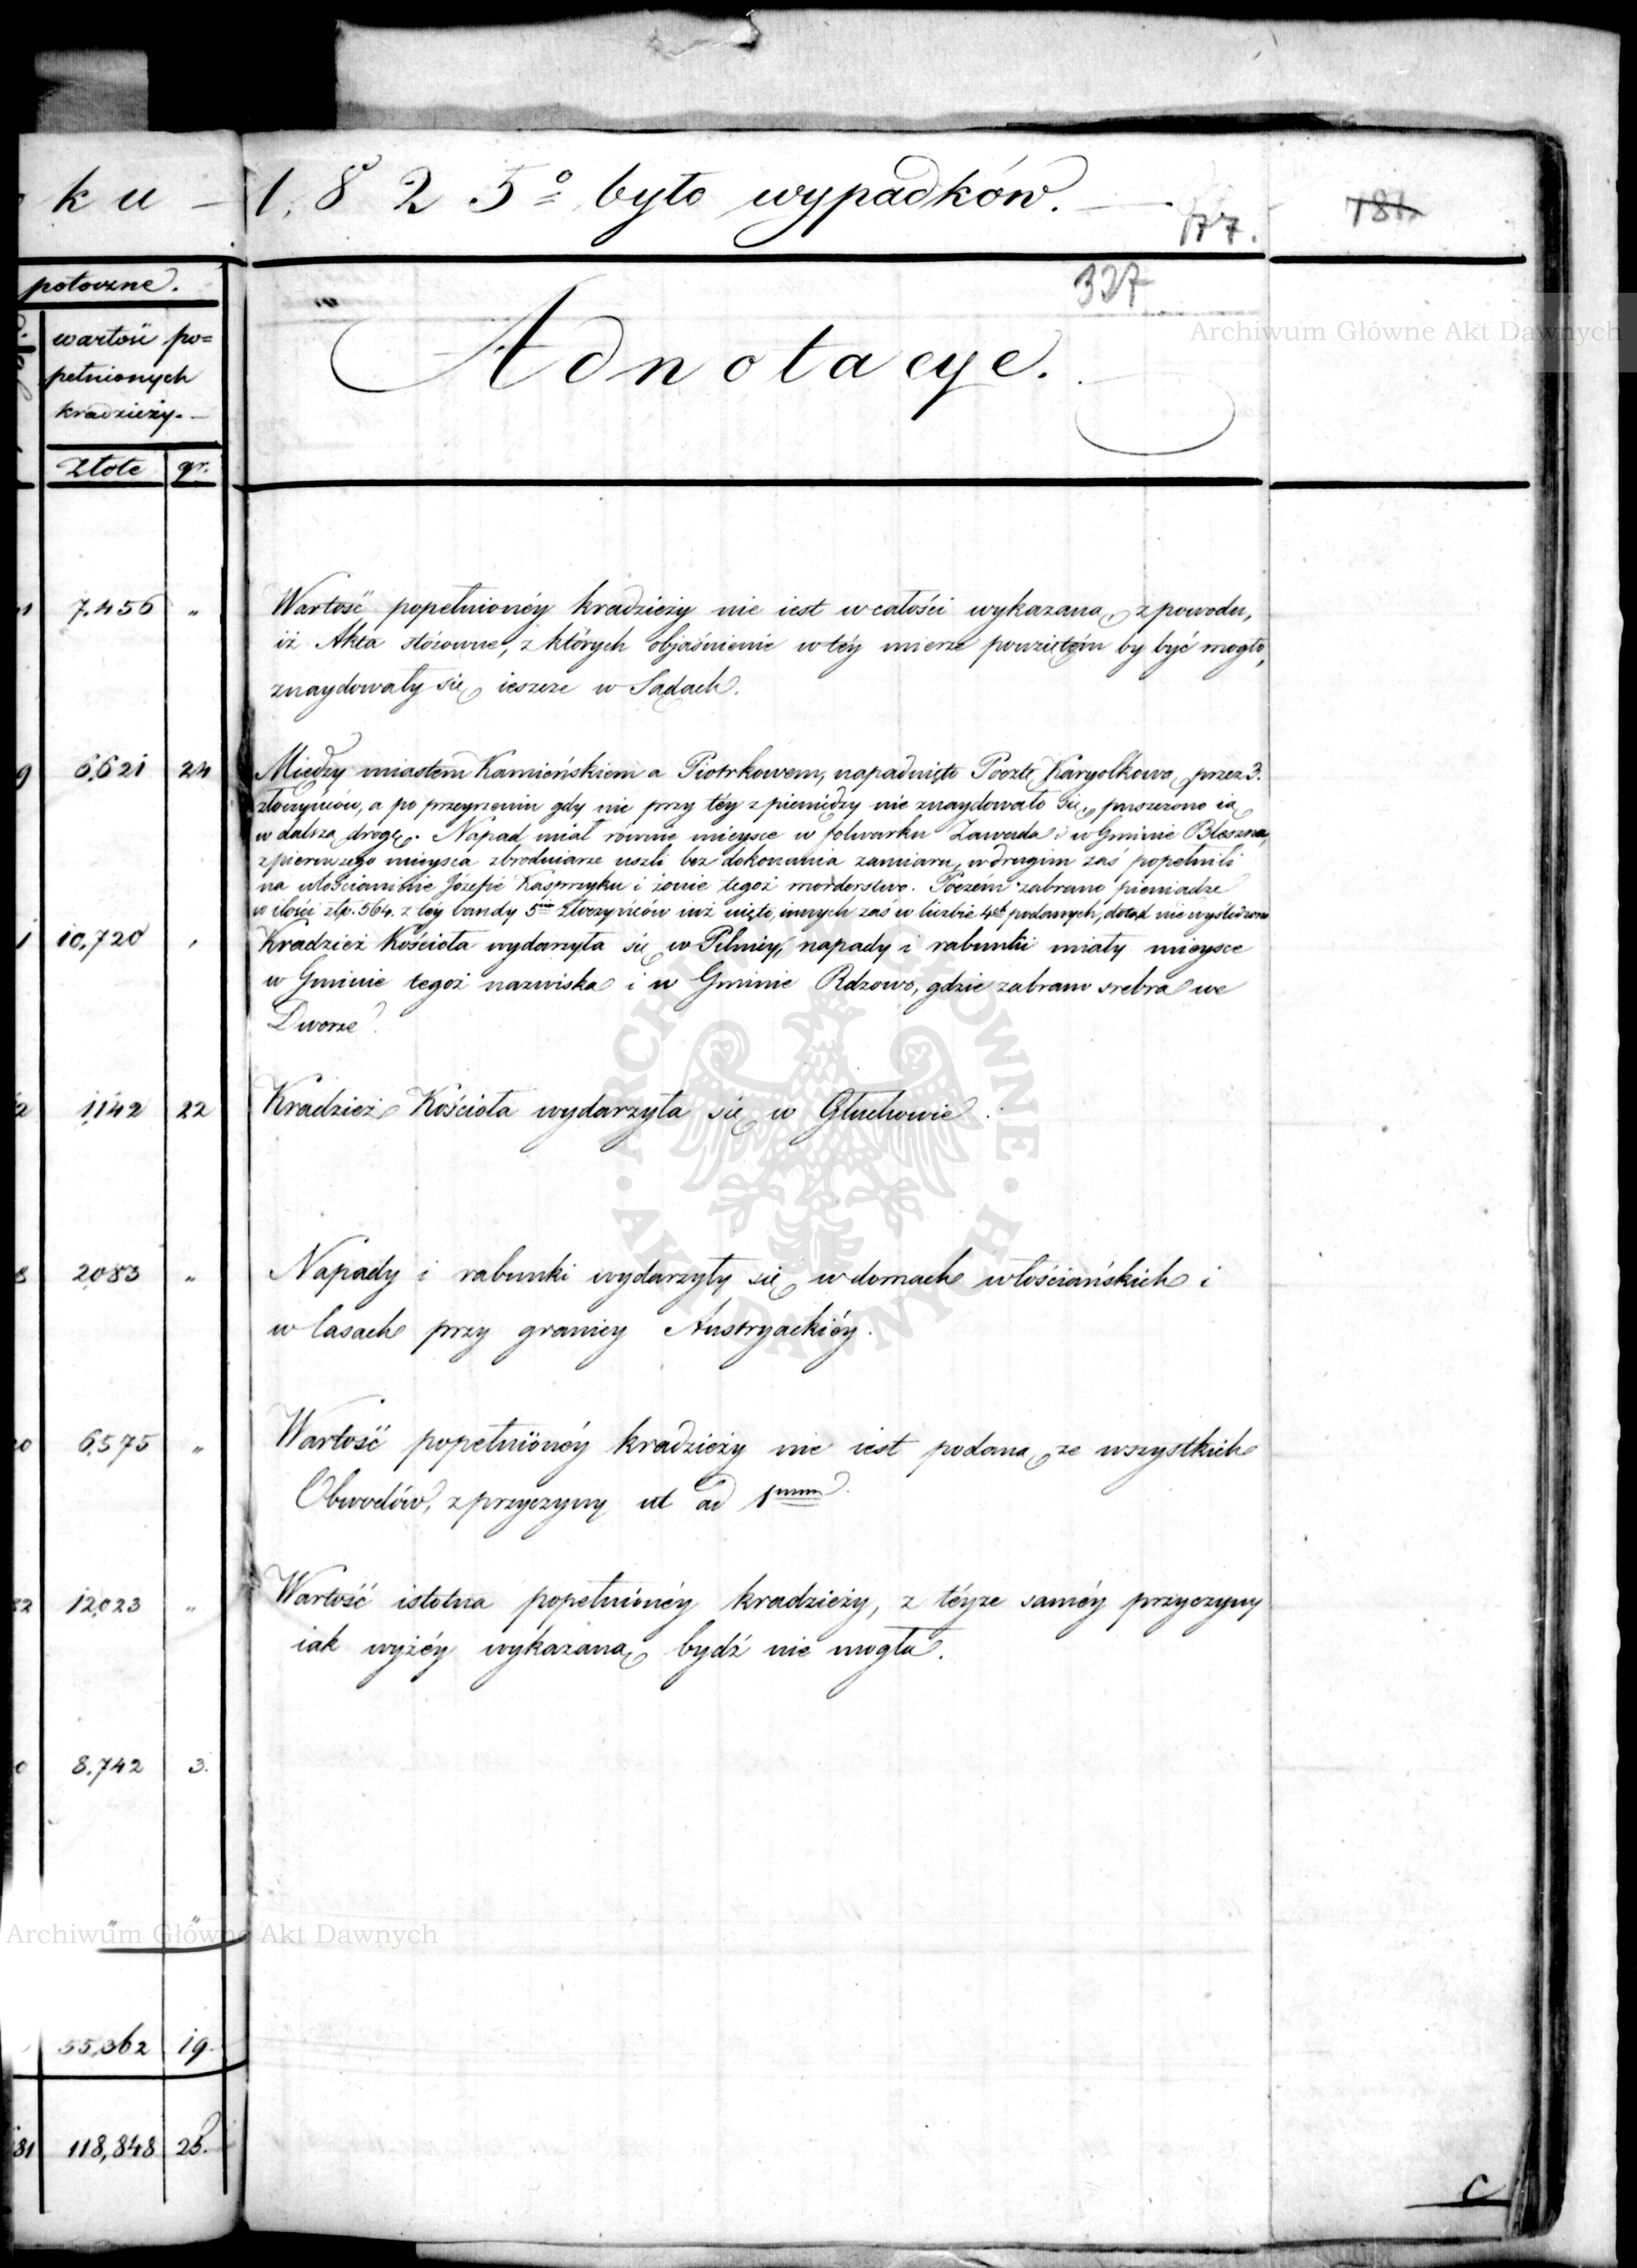 ku – 1825º było wypadków. –
177.
781.
potoczne.
327
Archiwum Główne Akt Dawnych
wartość po=
pełnionych
kradzieży. –
Adnotacye.
Złote gr.
7,456 „ Wartość popełnionéy kradzieży nie iest w całości wykazaną, z powodu,
iż Akta stósowne, z których objaśnienie w téy mierze powziętém by być mogło,
znaydowały się ieszcze w Sądach.
9 6,621 24 Między miastem Kamieńskiem a Piotrkowem, napadnięto Pocztę Karyolkową, przez 3.
złoczyńców, a po przeyrzeniu gdy nic przy téy z pieniędzy nie znaydowało się, puszczono ią
w dalszą drogę. Napad miał równie mieysce w folwarku Zawada i w Gminie Bleszna,
z pierwszego mieysca zbrodniarze uszli bez dokonania zamiaru, w drugim zaś popełnili
na włościaninie Józefie Kasprzyku i żonie tegoż morderstwo. Poczém zabrano pieniądze
w ilości złp. 564. z téy bandy 5ciu złoczyńców iuż uięto, innych zaś w liczbie 4ch podanych, dotąd nie wyśledzono
1 10,720 „ Kradzież Kościoła wydarzyła się w Pilnicy, napady i rabunki miały mieysce
w Gminie tegoż nazwiska i w Gminie Rdzowo, gdzie zabrano srebra we
Dworze.
2 1,142 22 Kradzież Kościoła wydarzyła się w Głuchowie.
8 2,083 „ Napady i rabunki wydarzyły się w domach włościańskich i
w lasach przy granicy Austryackiéy.
20 6,575 „ Wartość popełnionéy kradzieży nie iest podaną ze wszystkich
Obwodów, z przyczyny ut ad 1mum.
32 12,023 „ Wartość istotna popełnionéy kradzieży, z téyże saméy przyczyny
iak wyżéy wykazaną bydź nie mogła.
0 8,742 3.
„ „
Archiwum Główne Akt Dawnych
55,362 19.
81 118,848 25.
C
ARCHIWUM GŁÓWNE · AKT DAWNYCH ·